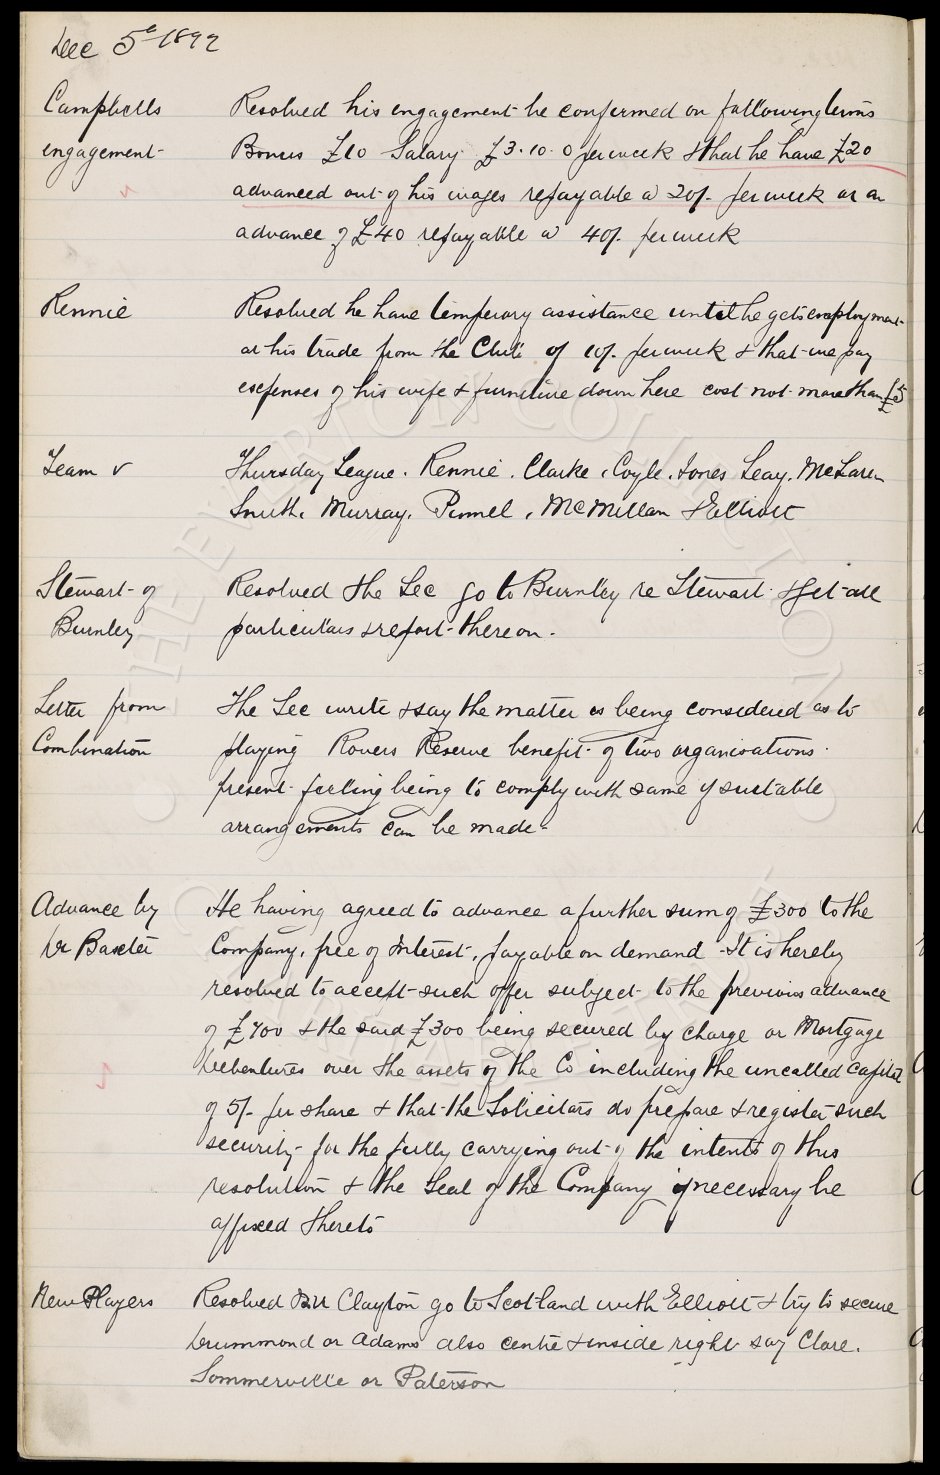 Dec 5th 1892
Campbells engagement
Resolved his engagement be confirmed on following terms
Bonus £10 Salary £3.10.0 per week & that he have £20
advanced out of his wages repayable @ 20/- per week or an
advance of £40 repayable @ 40/- per week
Rennie
Resolved he have temperary assistance until he gets employment
at his trade from the Club of 10/- per week & that we pay
expenses of his wife & furniture down here cost not more than £5
Team v
Thursday League. Rennie. Clarke, Coyle, Jones Leay, McLaren
Smith, Murray, Pinnel, McMillan & Elliott
Stewart of
Burnley
Resolved the Sec go to Burnley re Stewart & get all
particulars & report thereon.
Letter from
Combination
The Sec write & say the matter is being considered as to
playing Rovers Reserve benefit of two organisations
present feeling being to comply with same if suitable
arrangements can be made
Advance by
Dr Baxter
He having agreed to advance a further sum of £300 to the
Company, free of Interest, payable on demand - It is hereby
resolved to accept such offer subject to the previous advance
of £700 & the said £300 being secured by charge or Mortgage
Debentures over the assets of the Co including the uncalled capital
of 5/- per share & that the Solicitors do prepare & register such
security for the fully carrying out of the intents of this
resolution & the Seal of the Company if necessary be
affixed thereto
New Players
Resolved Mr Clayton go to Scotland with Elliott & try to secure
Drummond or Adams also centre & inside right say Clare.
Sommerville or Paterson
THE EVERTON COLLECTION